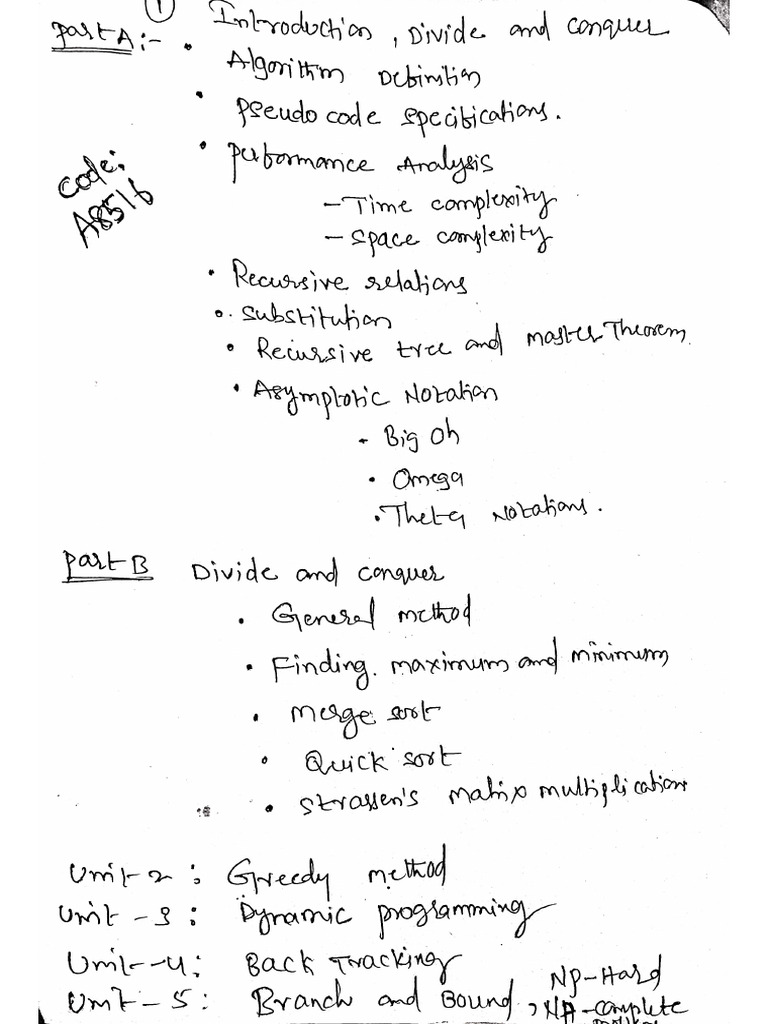 1
Part A :- • Introduction, Divide and conquer
Algorithm Definition
• Pseudo code specifications.
• Performance Analysis
- Time complexity
- Space complexity
code:
A8516
• Recursive relations
• Substitution
• Recursive tree and master Theorem
• Asymptotic Notation
- Big Oh
• Omega
• Theta Notations.
Part B Divide and conquer
• General method
• Finding. maximum and minimum
• Merge sort
• Quick sort
• Strassen's Matrix multiplication
Unit-2 : Greedy method
Unit-3 : Dynamic programming
Unit-4 : Back Tracking
Unit-5 : Branch and Bound, NP-Hard
NP-complete